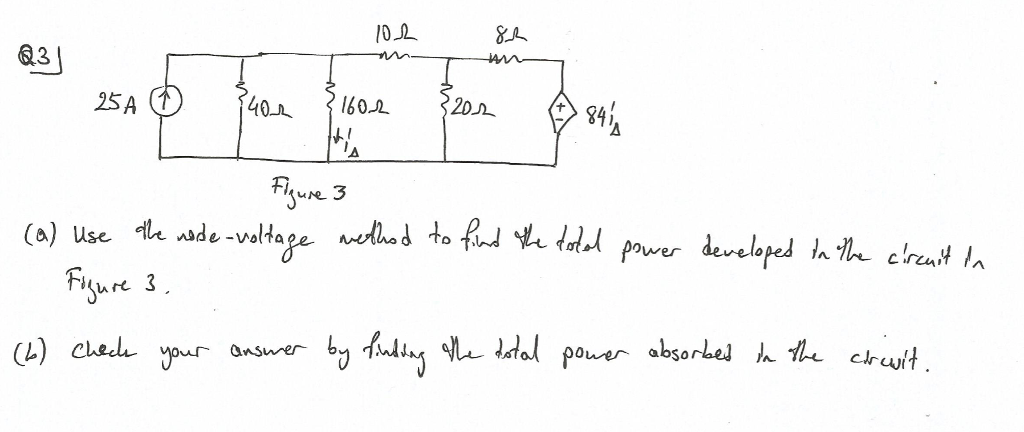 Q3]
10Ω 8Ω
25A 40Ω 160Ω 20Ω + - 84iΔ
iΔ
Figure 3
(a) Use the node-voltage method to find the total power developed in the circuit in
Figure 3.
(b) Check your answer by finding the total power absorbed in the circuit.